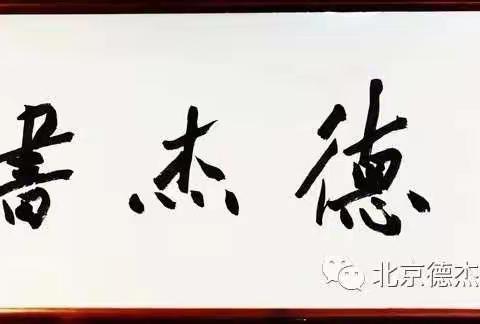 德杰書
北京德杰